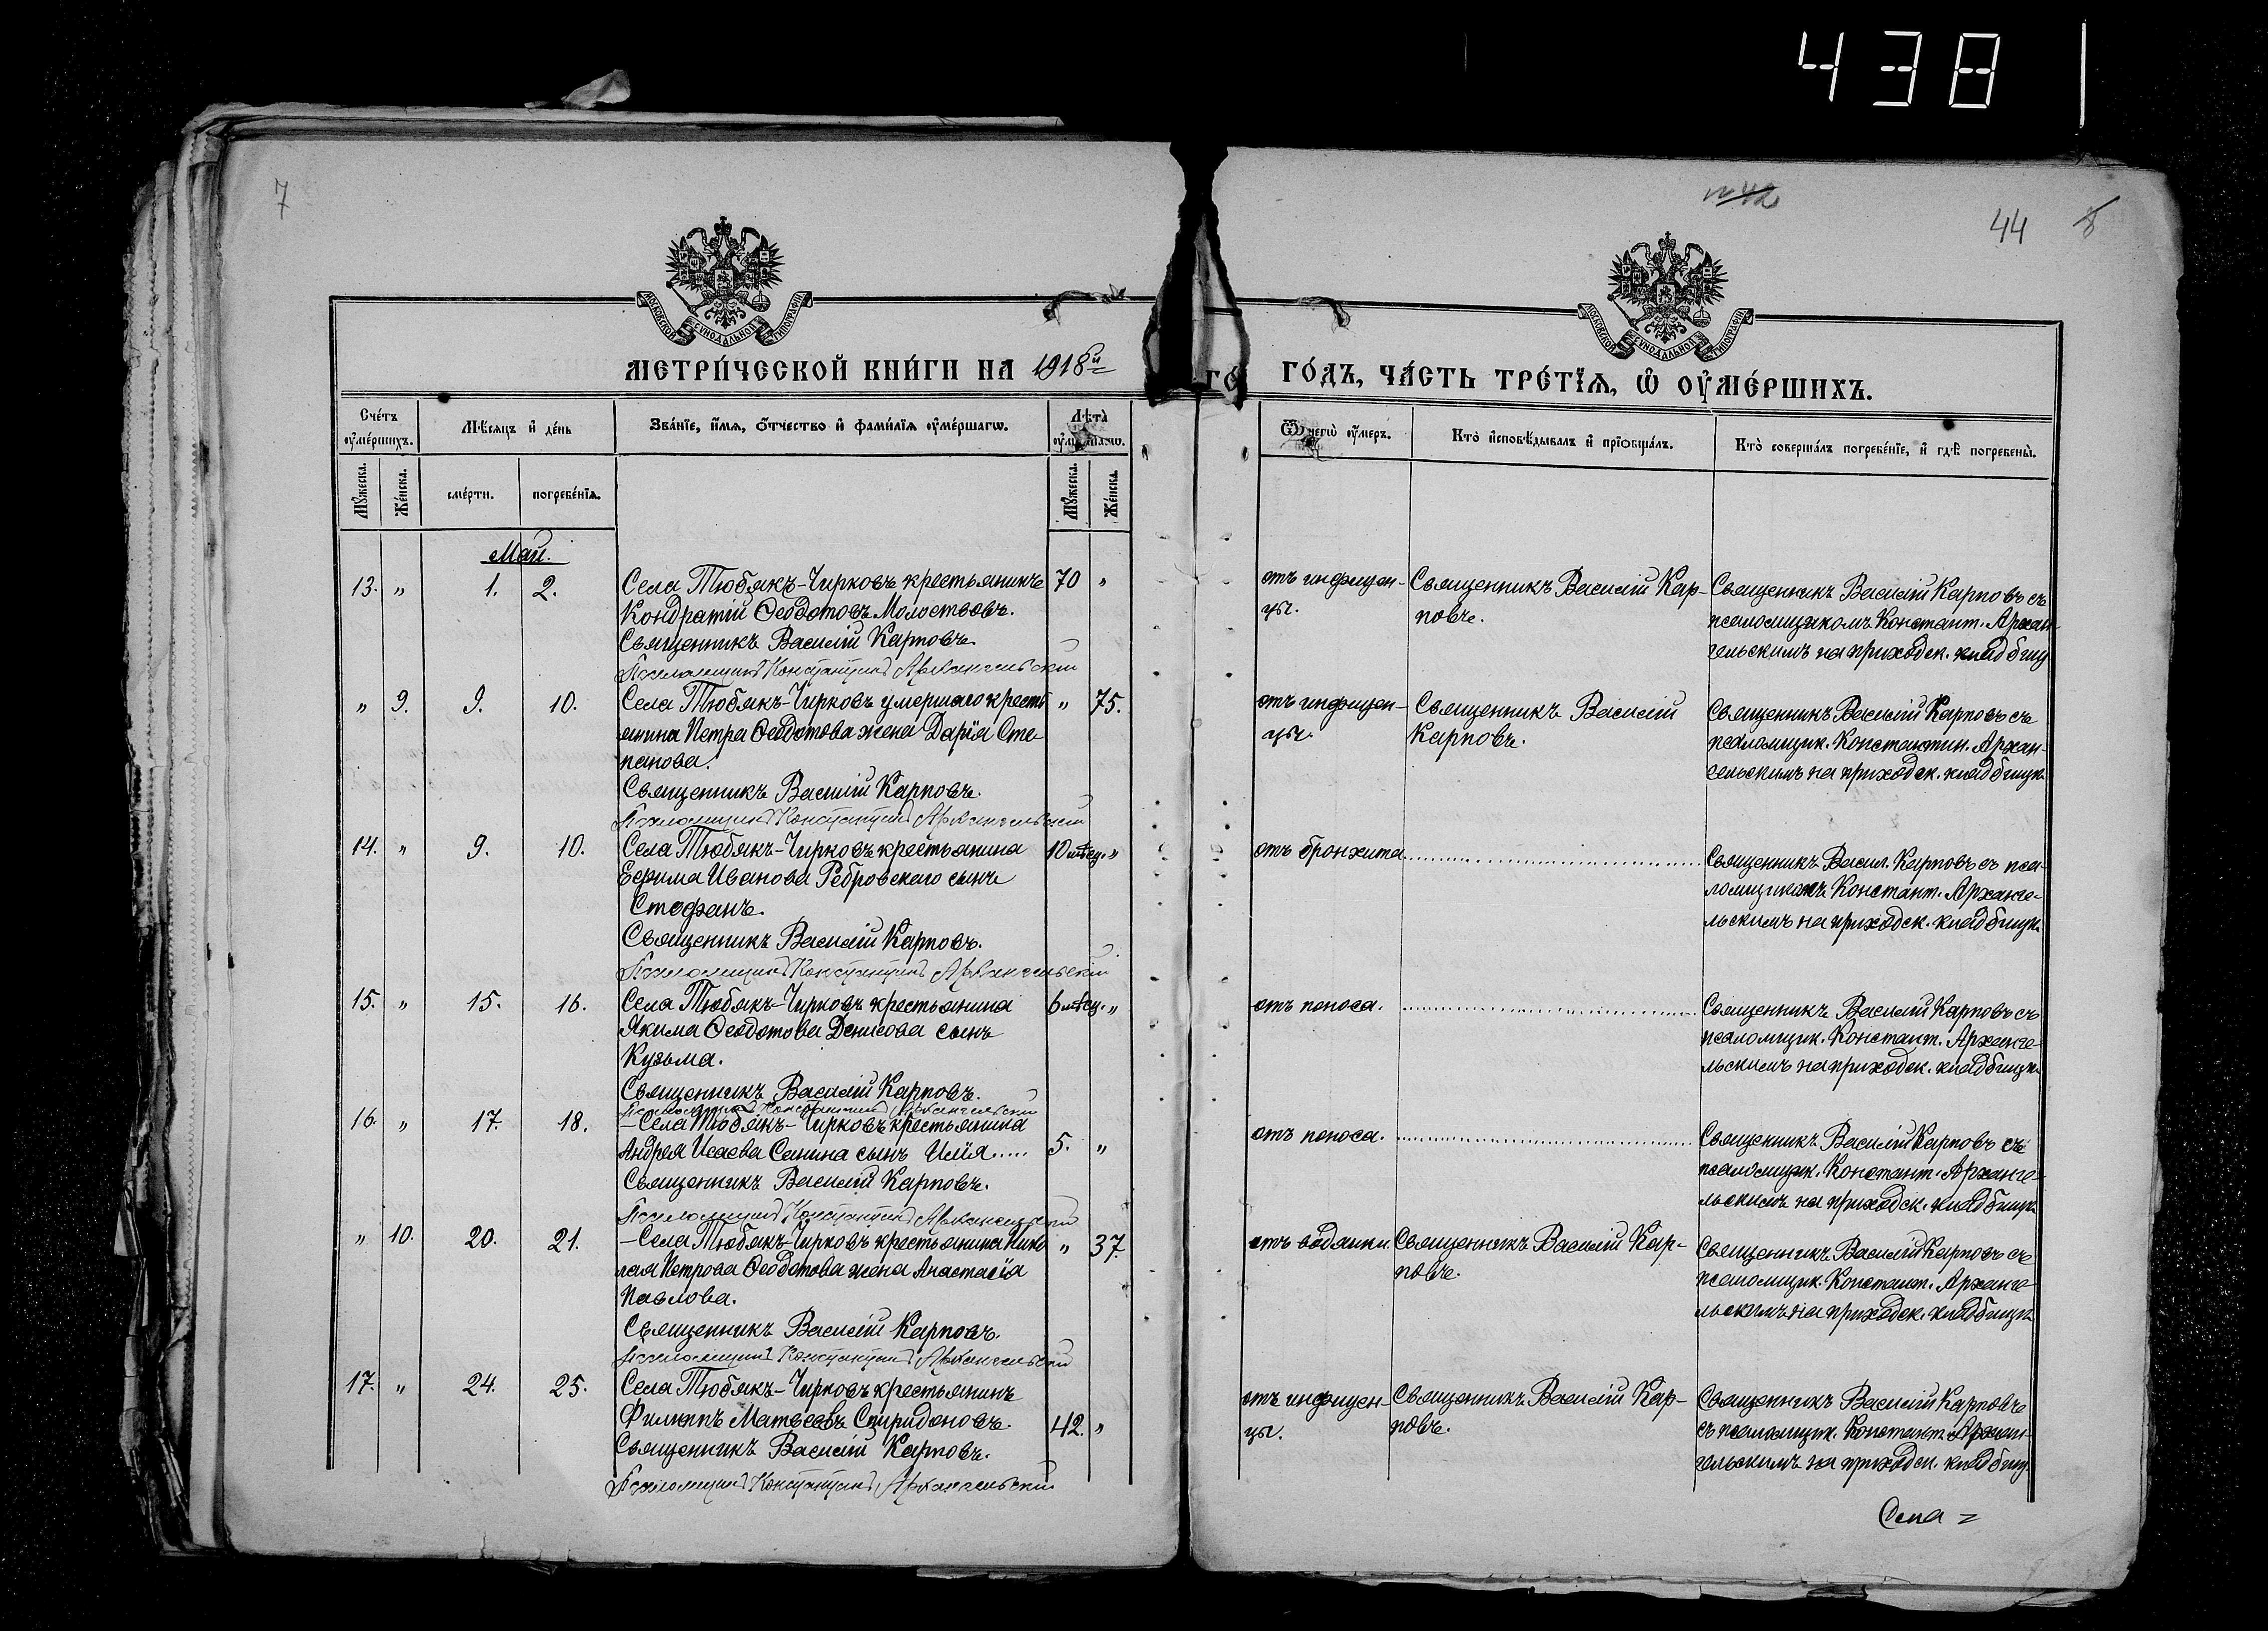 438
7
№ 42
44 8
МОСКОВСКОЙ СѴНОДАЛЬНОЙ ТИПОГРАФІИ
МОСКОВСКОЙ СѴНОДАЛЬНОЙ ТИПОГРАФІИ
МЕТРИ́ЧЕСКОЙ КНИ́ГИ НА 1918й ГО́
ГО́ДЪ, ЧА́СТЬ ТРЕ́ТЇѦ, Ѡ҆ ОУ҆МЕ́РШИХЪ.
Сче́тъ оу҆ме́ршихъ.
Мѣ́сѧцъ и҆ де́нь
Зва́нїе, и҆́мѧ, ѻ҆́тчество и҆ фами́лїѧ оу҆ме́ршагѡ.
Лѣ́та
Ѿ чегѡ̀ оу҆́меръ.
Кто̀ и҆сповѣ́дывалъ и҆ прїѡбща́лъ.
Кто̀ соверша́лъ погребе́нїе, и҆ гдѣ̀ погребены̀.
Мꙋ́жеска. Же́нска. сме́рти. погребе́нїѧ. Мꙋ́жеска. Же́нска.
Май.
13. " 1. 2. Села Тюбякъ-Чирковъ крестьянинъ 70 "
Кондратій Ѳеодотовъ Молостовъ.
Священникъ Василій Карповъ.
Псаломщикъ Константинъ Архангельскій
отъ инфлуен-
цы.
Священникъ Василій Кар-
повъ.
Священникъ Василій Карповъ съ
псаломщикомъ Констант. Архан-
гельскимъ на приходск. кладбищ.
" 9. 9. 10. Села Тюбякъ-Чирковъ умершаго кресть " 75.
янина Петра Ѳеодотова жена Дарія Сте-
панова.
Священникъ Василій Карповъ.
Псаломщикъ Константинъ Архангельскій
отъ инфлуен-
цы.
Священникъ Василій
Карповъ.
Священникъ Василій Карповъ съ
псаломщик. Константин. Архан-
гельскимъ на приходск. кладбищѣ.
14. " 9. 10. Села Тюбякъ-Чирковъ крестьянина 10 мѣсц. "
Ефрима Иванова Ребровскаго сынъ
Стефанъ.
Священникъ Василій Карповъ.
Псаломщикъ Константинъ Архангельскій
отъ бронхита
Священникъ Васил. Карповъ съ пса-
ломщикомъ Констант. Арханге-
льскимъ на приходск. кладбищѣ.
15. " 15. 16. Села Тюбякъ-Чирковъ крестьянина 6 мѣсц. "
Якима Ѳеодотова Денисова сынъ
Кузьма.
Священникъ Василій Карповъ.
Псаломщикъ Константинъ Архангельскій
отъ поноса.
Священникъ Василій Карповъ съ
псаломщик. Констант. Арханге-
льскимъ на приходск. кладбищѣ.
16. " 17. 18. – Села Тюбякъ-Чирковъ крестьянина
Андрея Исаева Санина сынъ Илія..... 5. "
Священникъ Василій Карповъ.
Псаломщикъ Константинъ Архангельскій
отъ поноса.
Священникъ Василій Карповъ съ
псаломщик. Констант. Арханге-
льскимъ на приходск. кладбищѣ.
" 10. 20. 21. – Села Тюбякъ-Чирковъ крестьянина Нико " 37.
лая Петрова Ѳеодотова жена Анастасія
Павлова.
Священникъ Василій Карповъ.
Псаломщикъ Константинъ Архангельскій
отъ водянки.
Священникъ Василій Кар-
повъ.
Священникъ Василій Карповъ съ
псаломщик. Констант. Арханге-
льскимъ на приходск. кладбищѣ
17. " 24. 25. Села Тюбякъ-Чирковъ крестьянинъ
Филиппъ Матвеевъ Спиридоновъ. 42. "
Священникъ Василій Карповъ.
Псаломщикъ Константинъ Архангельскій
отъ инфлуен-
цы.
Священникъ Василій Кар-
повъ.
Священникъ Василій Карповъ
съ псаломщик. Констант. Архан-
гельскимъ на приходск. кладбищ.
Села =